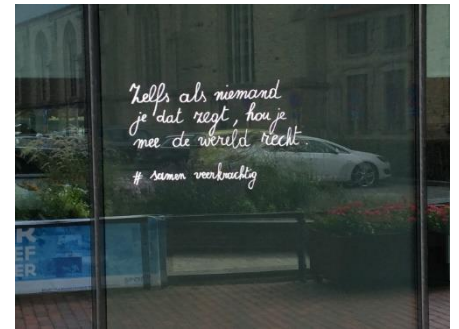 Zelfs als niemand
je dat zegt, hou je
mee de wereld recht
# samen veerkrachtig